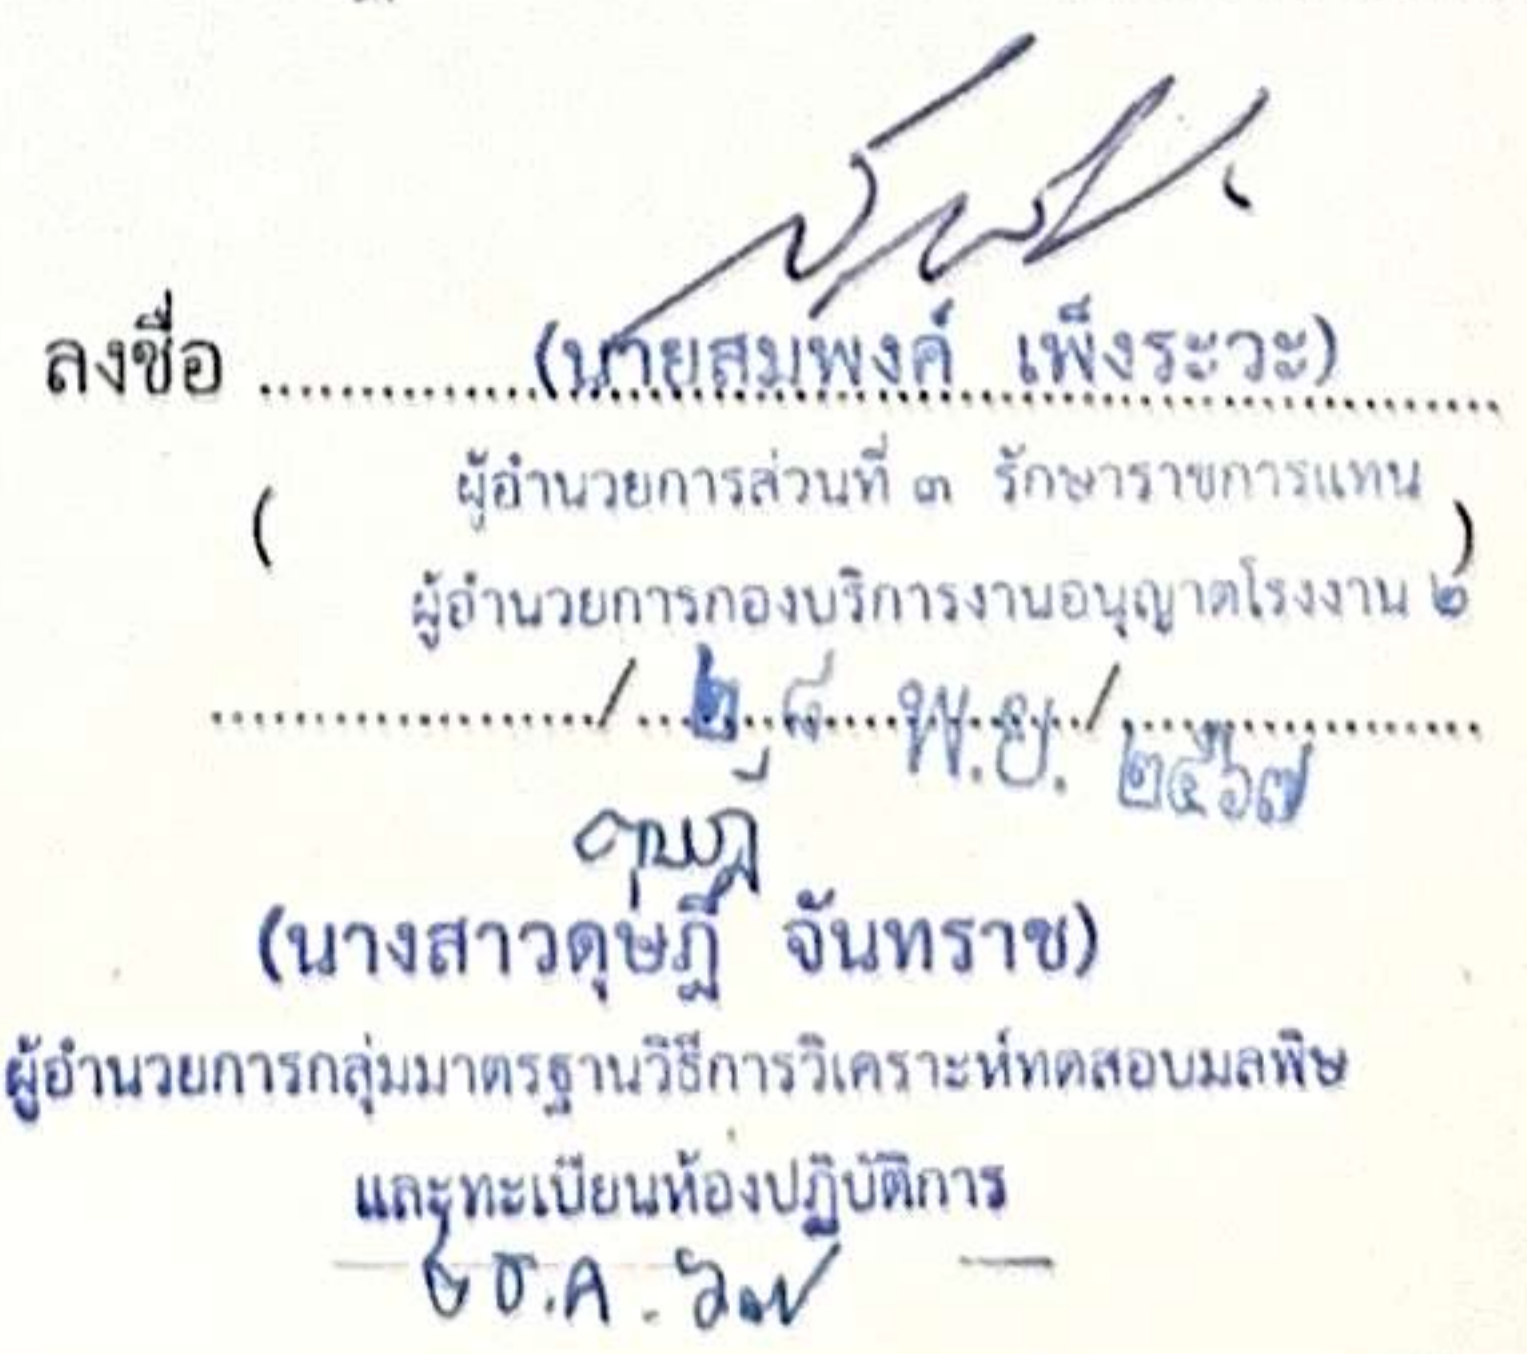 ลงชื่อ (นายสมพงค์ เพ็งระวะ)
ผู้อำนวยการส่วนที่ ๓ รักษาราชการแทน
( )
ผู้อำนวยการกองบริการงานอนุญาตโรงงาน ๒
/ ๒ ๘ พ.ย. / ๒๕๖๗
ดุษฎี
(นางสาวดุษฎี จันทราช)
ผู้อำนวยการกลุ่มมาตรฐานวิธีการวิเคราะห์ทดสอบมลพิษ
และทะเบียนห้องปฏิบัติการ
ธ.ค. ๖๗